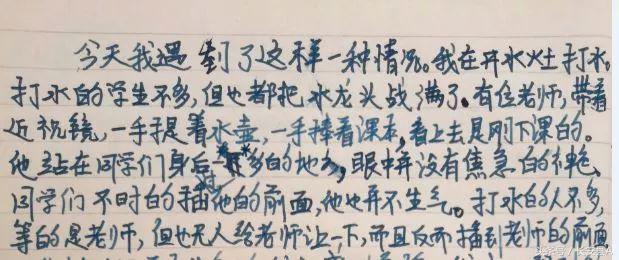 今天我遇到了这样一种情况。我在开水灶打水。
打水的学生不多，但也都把水龙头战满了。有位老师，带着
近视镜，一手提着水壶，一手捧着课本，看上去是刚下课的。
他站在同学们身后多的地方，眼中并没有焦急的神色、
同学们不时的插他的前面，他也并不生气。打水的人不多，
等的是老师，但也无人给老师让一下，而且反而插到老师的前面
头条号